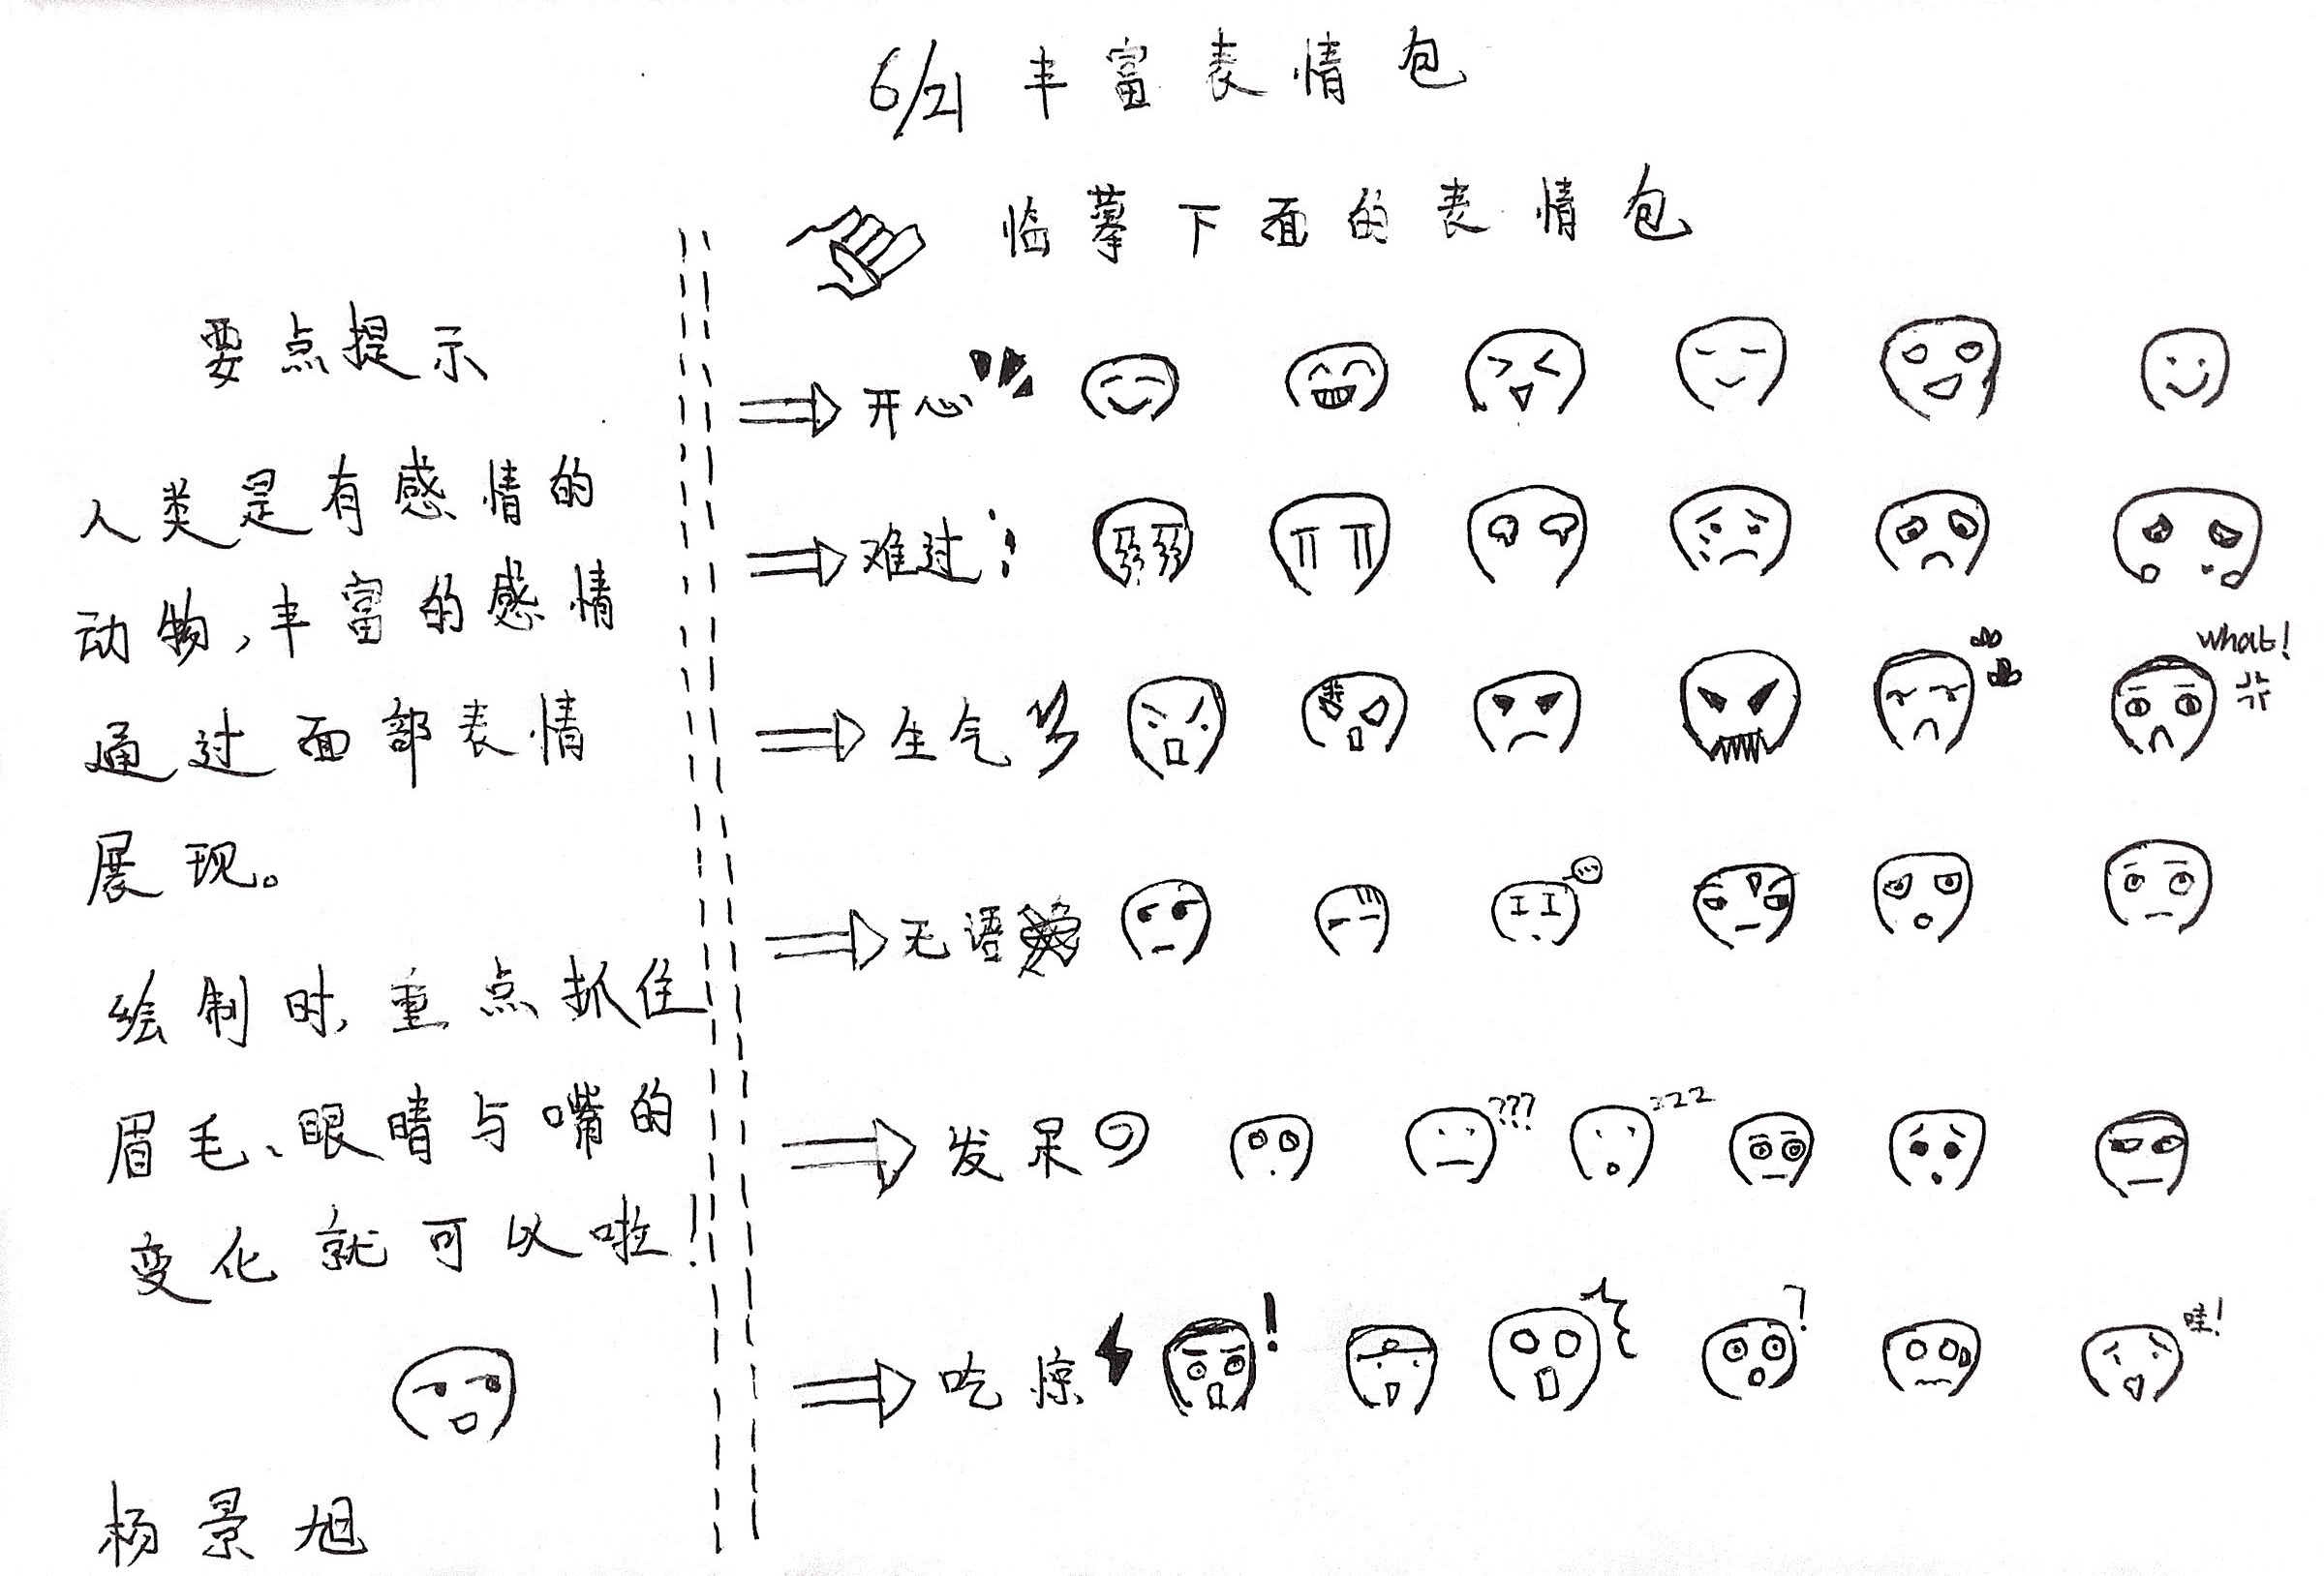 6/21 丰富表情包
临摹下面的表情包
要点提示
人类是有感情的
动物,丰富的感情
通过面部表情
展现。
绘制时,重点抓住
眉毛、眼睛与嘴的
变化就可以啦!
杨景旭
开心
难过
生气
what!
无语
发呆
???
zzz
吃惊
!
?
哇!